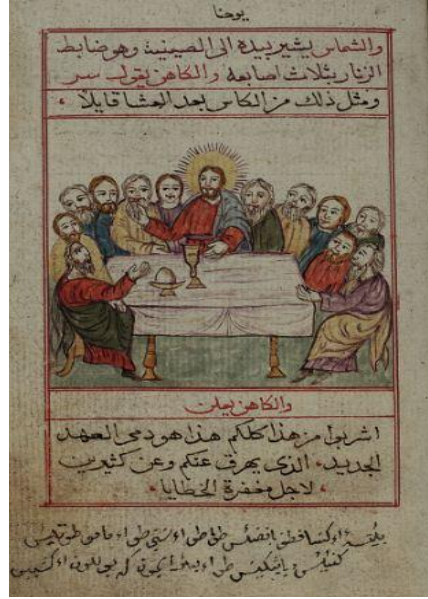 يوحنا
والشماس يشير بيده الى الصينية وهو ضابط
الزنار بثلاث اصابعه والكاهن يقول سر
ومثل ذلك من الكاس بعد العشا قايلا ،
والكاهن يعلن
اشربوا من هذا كلكم هذا هو دمي العهد
الجديد ، الذي يهرق عنكم وعن كثيرين
، لاجل مغفرة الخطايا ،